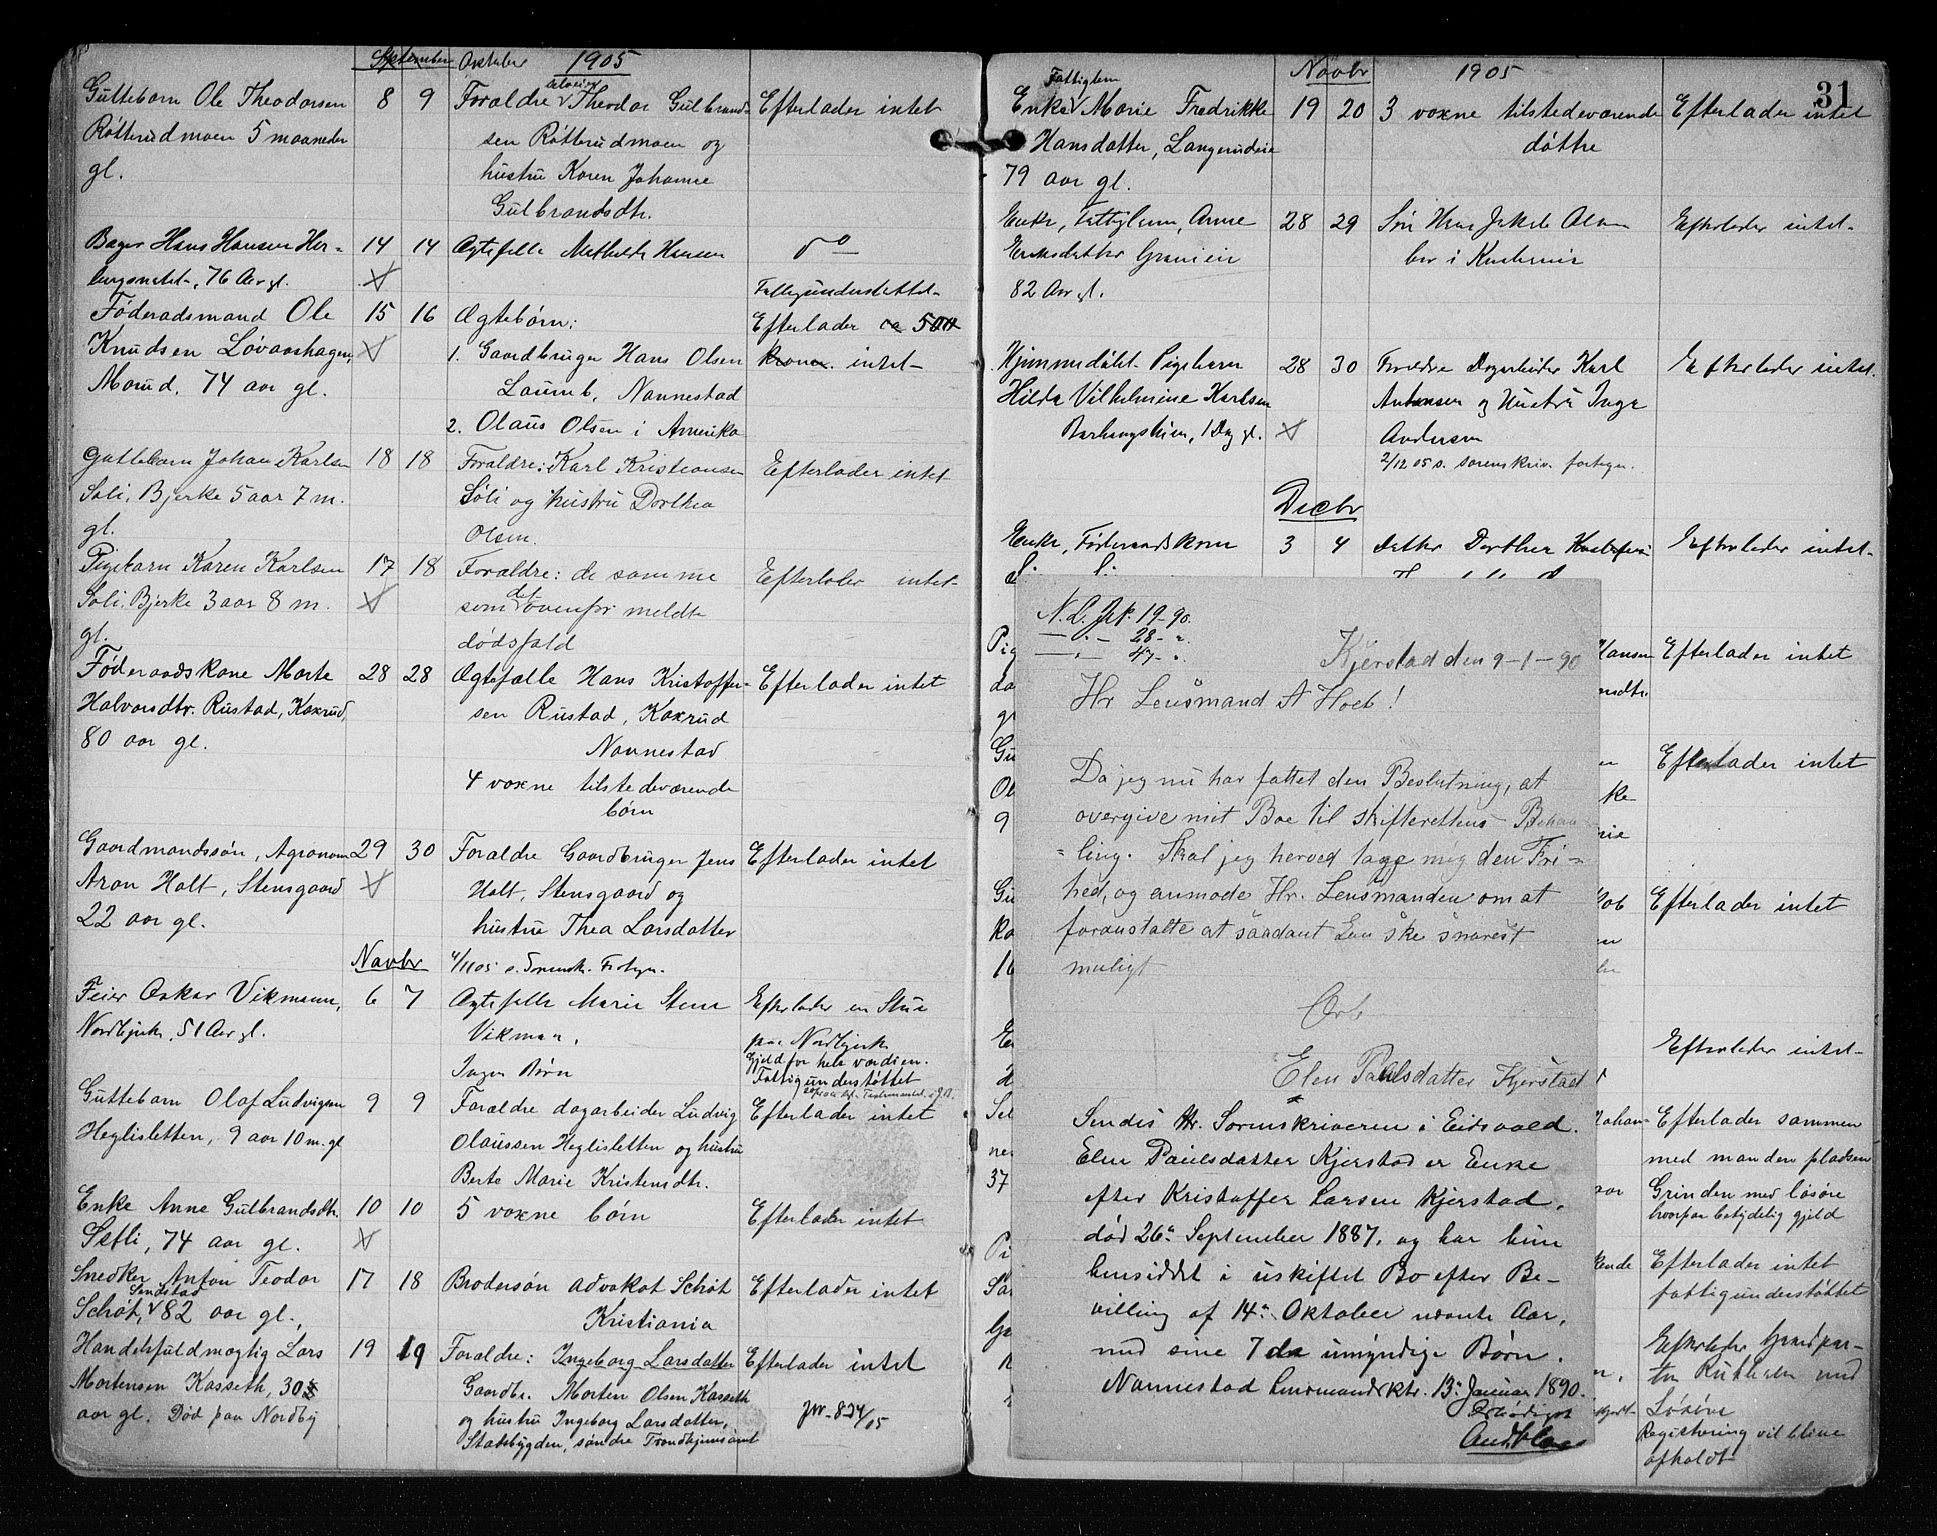 September Oktober 1905
Guttebarn Ole Theodorsen 8 9 Foraldre Theodor Gulbrand- Efterlader intet
Rötterudmoen 5 maaneder sen Röttrudmoen og
gl. hustru Karen Johanne
Gulbrandsdtr.
Bager Hans Hansen Her- 14 14 Ægtefelle Mathilde Hansen do
76 Aar gl.
Fattigunderstøttet
Føderadsmand Ole 15 16 Ægtebørn: Efterlader ca 500
Knudsen Løvaashagen, 1. Gaardbruger Hans Olsen kroner. intet
Morud. 74 aar gl. Laurub, Nannestad
2. Olaus Olsen i Amerika
Guttebarn Johan Karlsen 18 18 Foraldre: Karl Kristiansen Efterlader intet
Soli, Bjerke 5 aar 7 m. Soli og hustru Dorthea
gl. Olsen.
Pigebarn Karen Karlsen 17 18 Foraldre: de samme Efterlader intet
Soli, Bjerke 3 aar 8 m. som det ovenfor meldte
gl. dødsfald
Føderaadskone Marte 28 28 Ægtefælle Hans Kristoffer- Efterlader intet
Halvorsdtr. Rustad, Koxrud, sen Rustad, Koxrud
80 aar gl. Nannestad
4 voxne tilstedeværende
børn
Gaardmandssøn, Agronom 29 30 Foraldre Gaardbruger Jens Efterlader intet
Aron Holt, Stensgaard Holt, Stensgaard og
22 aar gl. hustru Thea Larsdatter
Novbr 4/11 05
Feier Oskar Vikmann, 6 7 Ægtefelle Marie Efterlader en Stue
Nordbjerke, 51 Aar gl. Vikman. paa Nordbjerke
Gjeld for hele værdien.
Ingen Børn Fattigunderstøttet
Guttebarn Olaf Ludvigsen 9 9 Foraldre dagarbeider Ludvig Efterlader intet
Heglisletten, 9 aar 10 m. gl Olaussen Heglisletten og hustru
Berte Marie Kristensdtr.
Enke Anne Gulbrandsdtr. 10 10 5 voxne børn Efterlader intet
74 aar gl.
Snedker Anton Teodor 17 18 Brodersøn advokat Schøt Efterlader intet
Schøt, 82 aar gl., Kristiania
Handelsfuldmægtig Lars 19 19 Foraldre: Ingeborg Larsdatter Efterlader intet
Mortensen Kasseth, 30 Gaardbr. Morten Olsen Kasseth
aar gl. Død paa Nordby og hustru Ingeborg Larsdatter,
Stadsbygden, søndre Trondhjemsamt
Jnr. 834/05
31
Novbr 1905
Fattiglem
Enke Marie Fredrikke 19 20 3 voxne tilstedeværende Efterlader intet
Hansdatter, Langerudeie døttre
79 aar gl.
Enke, Fattiglem, Anne 28 29 Søn Hans Jakob Olsen Efterlader intet
Eriksdatter Graneie bor i Kristiania
82 Aar gl.
Hjemmedøbt Pigebarn 28 30 Foreldre Dagarbeider Karl Efterlader intet.
Hilda Vilhelmine Karlsen Antonsen og Hustru Inga
1 Dag gl. Andersen
2/12 05 s. sorenskriv. fortegn.
Decbr
Enke, Føderaadskone 3 4 Datter Dorthea Efterlader intet
N. L. Jrk. 19-90.
28-
47-
Kjerstad den 9-1-90
Hr Lensmand A Hoel!
Da jeg nu har fattet den Beslutning, at
overgive mit Boe til skifterettens Behand-
ling. Skal jeg herved tage mig den Fri-
hed, og anmode Hr. Lensmanden om at
foranstalte at saadant kan ske snarest
muligt
Ærb
Elen Paulsdatter Kjerstad
Sendes Hr. Sorenskriveren i Eidsvold.
Elen Paulsdatter Kjerstad er Enke
efter Kristoffer Larsen Kjerstad,
død 26de September 1887, og har hun
hensiddet i uskiftet Bo efter Be-
villing af 14de Oktober næste Aar,
med sine 7 umyndige Børn.
Nannestad Lensmandsktr. 13de Januar 1890.
Ærbødigst
Hansen Efterlader intet
Efterlader intet
Efterlader intet
Efterlader intet
Efterlader sammen
med manden pladsen
Grinden med løsøre
hvorpaa betydelig gjeld
Efterlader intet
fattigunderstøttet
Efterlader Grandpar-
ten med
Løsøre
Registrering vil blive
afholdt